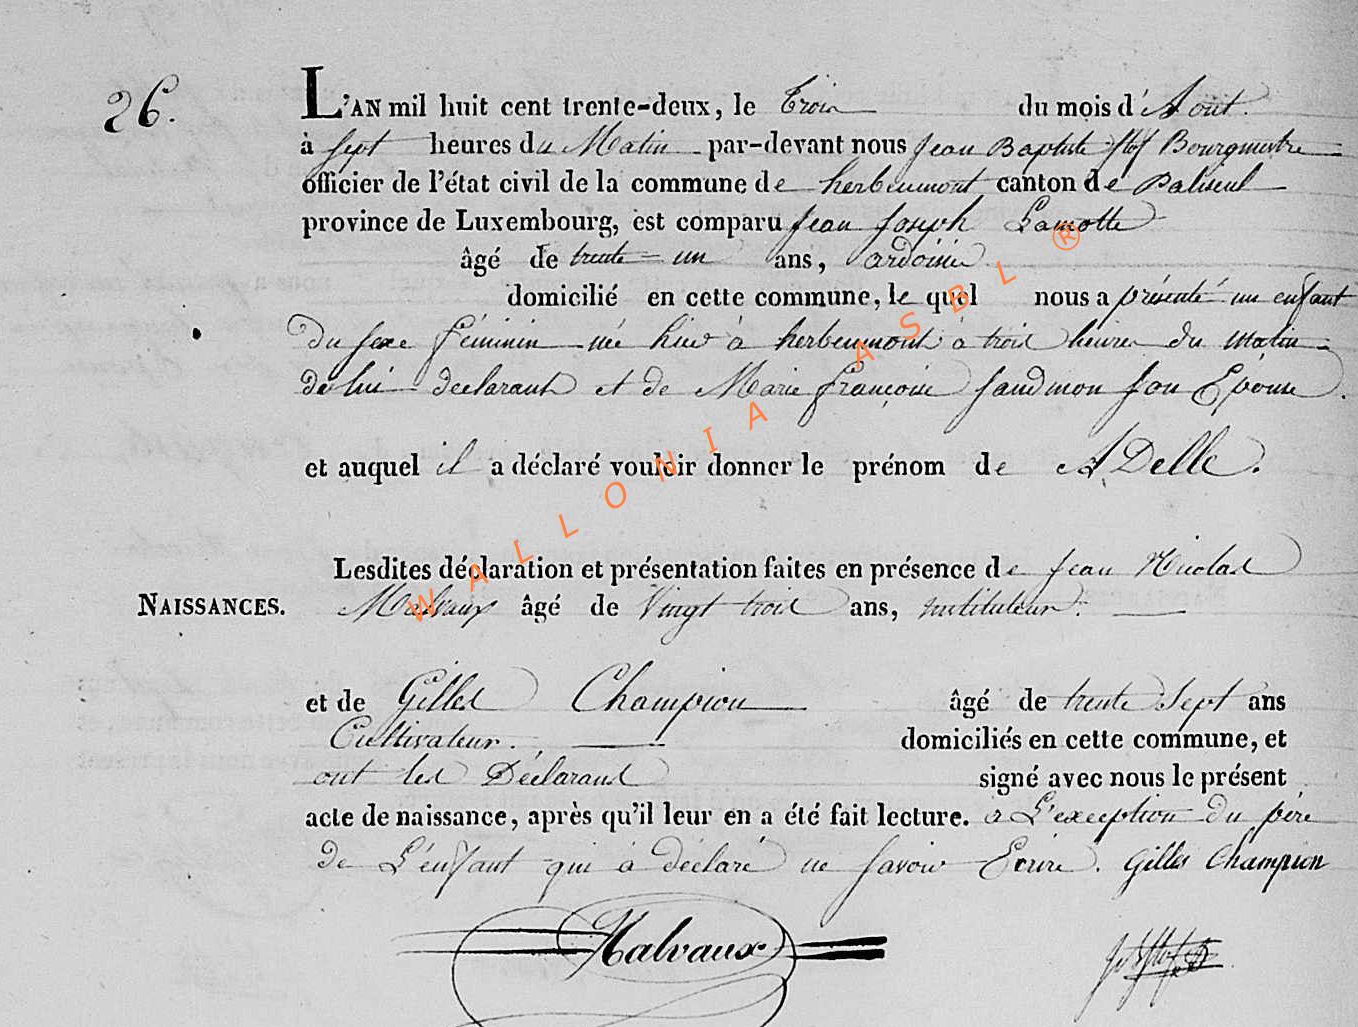 26.
L'AN mil huit cent trente-deux, le trois du mois d'Aout.
à sept heures du Matin par-devant nous Jean Baptiste Bourgmestre
officier de l'état civil de la commune de herbeumont canton de Paliseul
province de Luxembourg, est comparu Jean Joseph Lamotte
âgé de trente-un ans, ardoisier
domicilié en cette commune, le quel nous a présenté un enfant
du sexe féminin née hier à herbeumont à trois heures du matin
de lui declarant et de Marie françoise Sandmon son Epouse.
et auquel il a déclaré vouloir donner le prénom de ADelle.
Lesdites déclaration et présentation faites en présence de Jean Nicolas
NAISSANCES. Malvaux âgé de Vingt trois ans, instituteur.
et de Gilles Champion âgé de trente Sept ans
Cultivateur. domiciliés en cette commune, et
ont les Déclarans signé avec nous le présent
acte de naissance, après qu'il leur en a été fait lecture. à L'exception du père
de L'enfant qui à déclaré ne savoir Ecrire. Gilles Champion
Malvaux
WALLONIA ASBL ®